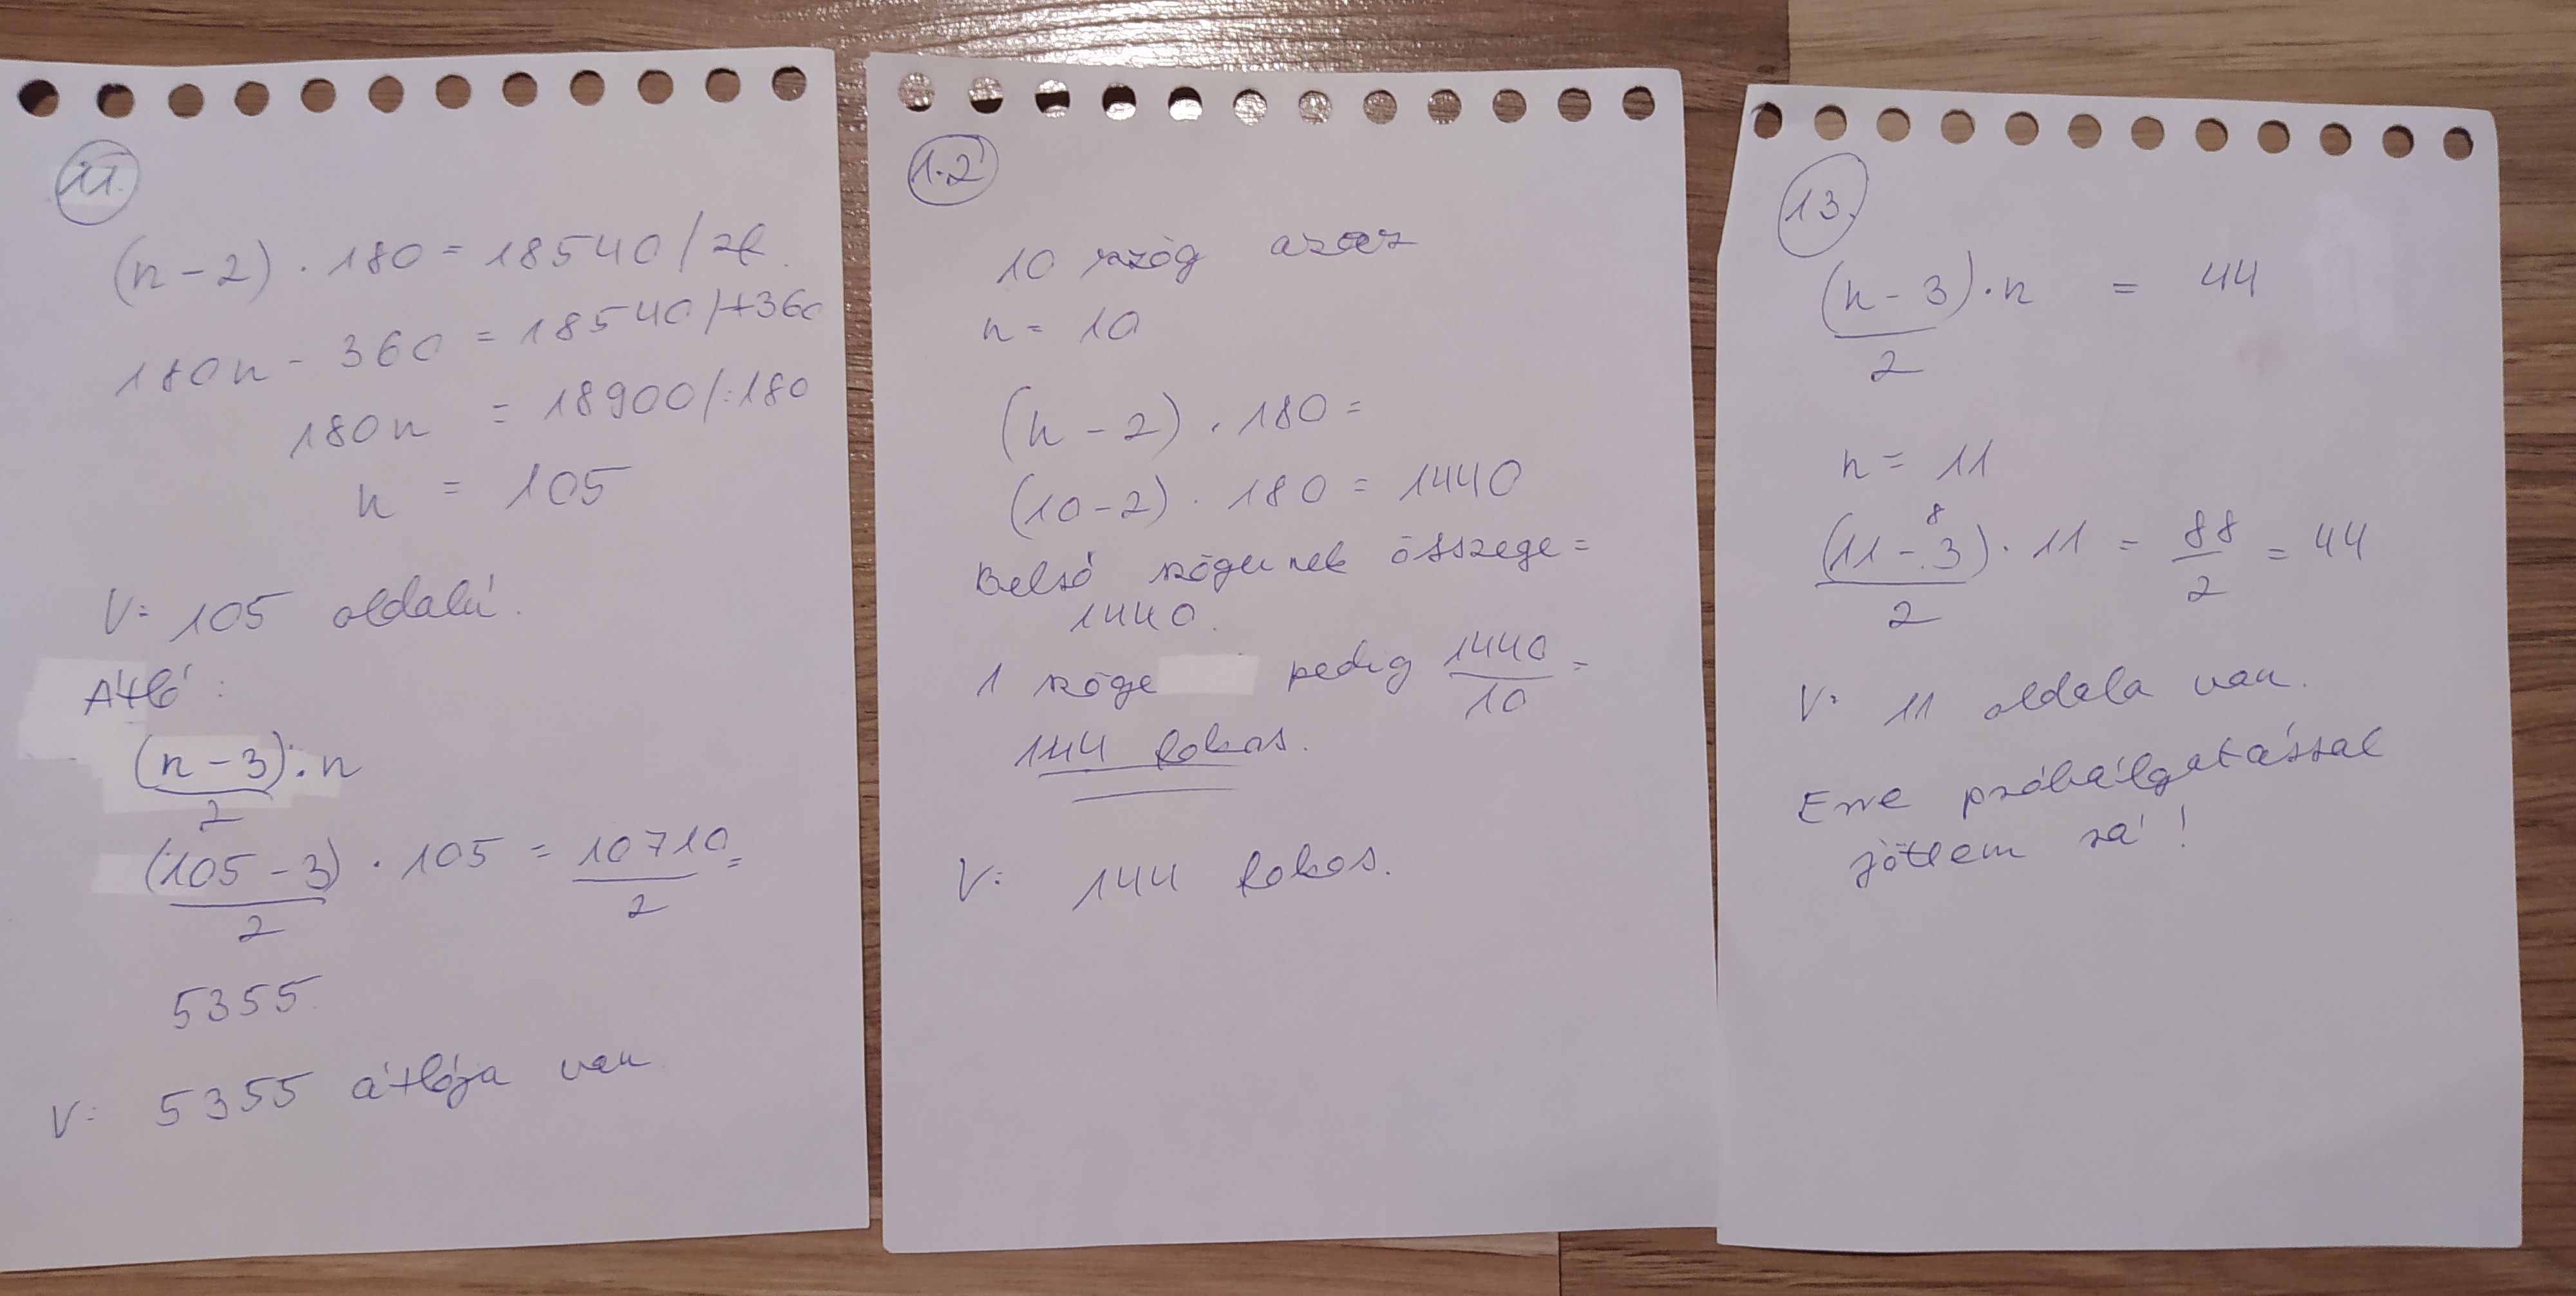 11.
(n-2) · 180 = 18540 / zf.
180n - 360 = 18540 /+360
180n = 18900 /:180
n = 105
V: 105 oldalú.
Átló:
(n-3)·n
2
(105-3) · 105 = 10710 =
2 2
5355.
V: 5355 átlója van
1.2
10 szög azaz
n = 10
(n-2) · 180 =
(10-2) · 180 = 1440
Belső szögeinek összege =
1440.
1 szöge pedig 1440 =
10
144 fokos.
V: 144 fokos.
13.
(n-3)·n = 44
2
n = 11
8
(11-3) · 11 = 88 = 44
2 2
V: 11 oldala van.
Erre próbálgatással
jöttem rá!